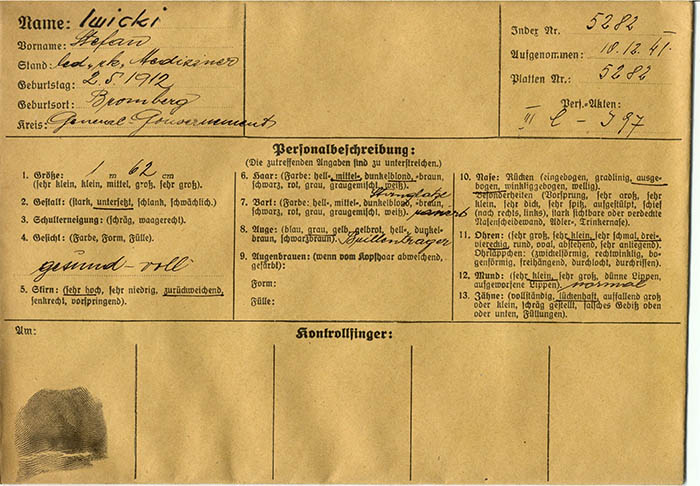 Name: Iwicki
Vorname: Stefan
Stand: led., rk., Mediziner
Geburtstag: 2.5.1912
Geburtsort: Bromberg
Kreis: General Gouvernement
Index Nr. 5282
Aufgenommen: 10.12.41.
Platten Nr.: 5282
Pers.-Akten:
III C - J 97
Personalbeschreibung:
(Die zutreffenden Angaben sind zu unterstreichen.)
1. Größe: 1 m 62 cm
(sehr klein, klein, mittel, groß, sehr groß).
2. Gestalt: (stark, untersetzt, schlank, schwächlich).
3. Schulterneigung: (schräg, waagerecht).
4. Gesicht: (Farbe, Form, Fülle).
gesund - voll
5. Stirn: (sehr hoch, sehr niedrig, zurückweichend,
senkrecht, vorspringend).
6. Haar: (Farbe: hell-, mittel-, dunkelblond, -braun,
schwarz, rot, grau, graugemischt, weiß).
7. Bart: (Farbe: hell-, mittel-, dunkelblond, -braun,
schwarz, rot, grau, graugemischt, weiß). rasiert
8. Auge: (blau, grau, gelb, gelbrot, hell-, dunkel-
braun, schwarzbraun). Brillenträger
9. Augenbrauen: (wenn vom Kopfhaar abweichend,
gefärbt):
Form:
Fülle:
10. Nase: Rücken (eingebogen, gradlinig, ausge-
bogen, winkligebogen, wellig).
Besonderheiten (Vorsprung, sehr groß, sehr
klein, sehr dick, sehr spitz, aufgestülpt, schief
(nach rechts, links), stark sichtbare oder verdeckte
Nasenscheidewand, Adler-, Trinkernase).
11. Ohren: (sehr groß, sehr klein, sehr schmal, drei-
viereckig, rund, oval, abstehend, sehr anliegend).
Ohrläppchen: (zwickelförmig, rechtwinklig, bo-
genförmig, freihängend, durchlocht, durchrissen).
12. Mund: (sehr klein, sehr groß, dünne Lippen,
aufgeworfene Lippen). normal
13. Zähne: (vollständig, lückenhaft, auffallend groß
oder klein, schräg gestellt, falsches Gebiß oben
oder unten, Füllungen).
Am:
Kontrollfinger: